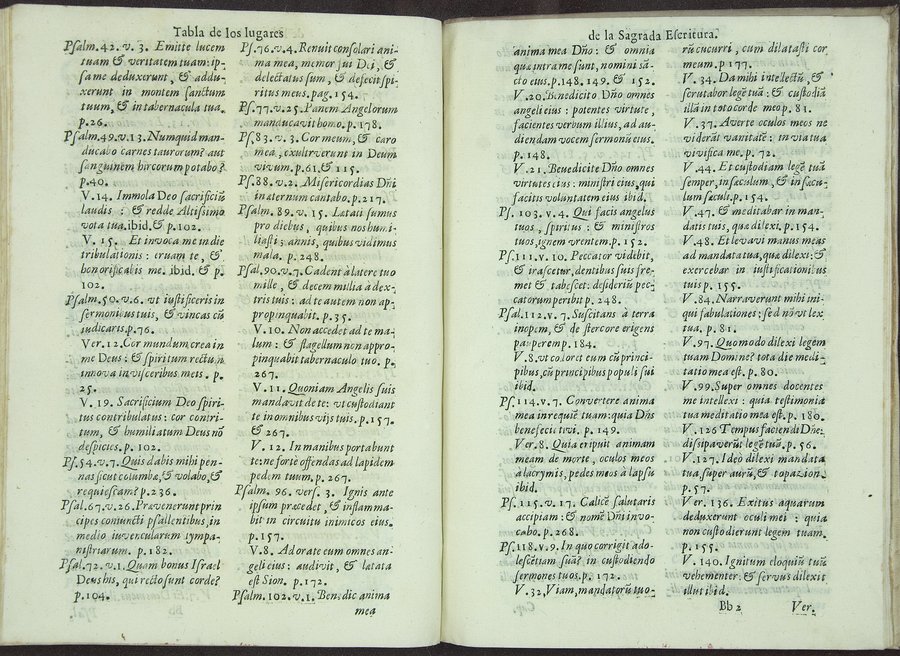 Tabla de los lugares
Psalm. 42. v. 3. Emitte lucem
tuam & veritatem tuam: ip-
sa me deduxerunt, & addu-
xerunt in montem sanctum
tuum, & in tabernacula tua.
p.26.
Psalm.49.v.13. Numquid man-
ducabo carnes taurorum? aut
sanguinem hircorum potabo?
p.40.
V.14. Immola Deo sacrificiũ
laudis : & redde Altissimo
vota tua. ibid. & p.102.
V. 15. Et invoca me in die
tribulationis : eruam te, &
honorificabis me. ibid. & p.
102.
Psalm.50.v.6. vt iustificeris in
sermonibus tuis, & vincas cũ
iudicaris.p.76.
Ver.12.Cor mundum crea in
me Deus : & spiritum rectum
innova in visceribus meis. p.
25.
V. 19. Sacrificium Deo spiri-
tus contribulatus : cor contri-
tum, & humiliatum Deus nõ
despicies. p. 102.
Ps.54.v.7. Quis dabis mihi pen-
nas sicut columbæ, & volabo, &
requiescam? p.236.
Psal.67.v.26. Prævenerunt prin
cipes coniuncti psallentibus, in
medio iuvencularum tympa-
nistriarum. p. 182.
Psal.72.v.1. Quam bonus Israel
Deus his, qui recto sunt corde?
p.104.
Ps.76.v.4. Renuit consolari ani-
ma mea, memor fui Dei, &
delectatus sum, & defecit spi-
ritus meus. pag.154.
Ps.77.v.25. Panem Angelorum
manducavit homo. p.178.
Ps.83. v. 3. Cor meum, & caro
mea, exultverunt in Deum
vivum. p.61.& 115.
Ps.88.v.2. Misericordias Dñi
in æternum cantabo. p.217.
Psalm.89.v.15. Lætati sumus
pro diebus, quibus nos humi-
liasti : annis, quibus vidimus
mala. p. 248.
Psal.90.v.7. Cadent à latere tuo
mille, & decem millia à dex-
tris tuis : ad te autem non ap-
propinquabit. p.35.
V.10. Non accedet ad te ma-
lum: & flagellum non appro-
pinquabit tabernaculo tuo. p.
267.
V.11. Quoniam Angelis suis
mandavit de te: vt custodiant
te in omnibus vijs tuis. p.157.
& 267.
V. 12. In manibus portabunt
te: ne forte offendas ad lapidem
pedem tuum, p.267.
Psalm. 96. vers. 3. Ignis ante
ipsum præcedet, & inflamma-
bit in circuitu inimicos eius.
p.157.
V.8. Adorate eum omnes an-
geli eius : audivit, & lætata
est Sion. p.172.
Psalm.102.v.1. Benedic anima
mea
de la Sagrada Escritura.
anima mea Dño : & omnia
quæ intra me sunt, nomini sã-
cto eius.p.148. 149. & 152.
V.20.Benedicito Dño omnes
angeli eius : potentes virtute,
facientes verbum illius, ad au-
diendam vocem sermonũ eius.
p. 148.
V.21. Benedicite Dño omnes
virtutes eius : ministri eius, qui
facitis voluntatem eius ibid.
Ps. 103. v. 4. Qui facis angelos
tuos , spiritus : & ministros
tuos, ignem vrentem. p. 152.
Ps.111.v.10. Peccator videbit,
& irascetur, dentibus suis fre-
met & tabescet: desideriũ pec-
catorum peribit p. 248.
Psal.112.v.7. Suscitans à terra
inopem, & de stercore erigens
pauperem p. 184.
V.8.vt colocet eum cũ princi-
pibus, cũ principibus populi sui
ibid.
Ps.114.v.7. Convertere anima
mea in requiẽ tuam: quia Dñs
benefecit tivi. p. 149.
Ver.8. Quia eripuit animam
meam de morte, oculos meos
à lacrymis, pedes meos à lapsu
ibid.
Ps.115.v.17. Calicẽ salutaris
accipiam : & nomẽ Dñi invo-
cabo. p.268.
Ps.118.v.9. In quo corrigit ado-
lescẽtiam suã? in custodiendo
sermones tuos. p. 172.
V.32,Viam, mandatorũ tuo-
rũ cucurri , cum dilatasti cor
meum. p 177.
V. 34. Da mihi intellectũ, &
scrutabor legẽ tuã : & custodiã
illã in toto corde meo p. 81.
V.37. Averte oculos meos ne
videãt vanitatẽ : in via tua
vivifica me. p. 72.
V.44. Et custodiam legẽ tuã
semper, in sæculum, & in sæcu-
lum sæculi.p.154.
V.47. & meditabar in man-
datis tuis, quæ dilexi. p.154.
V.48. Et levavi manus meas
ad mandata tua, quæ dilexi: &
exercebar in iustificationibus
tuis p. 155.
V.84. Narraverunt mihi ini-
qui fabulationes : sed nõ vt lex
tua. p. 81.
V.97. Quomodo dilexi legẽm
tuam Domine? tota die medi-
tatio mea est. p. 80.
V.99.Super omnes docentes
me intellexi : quia testimonia
tua meditatio mea est. p. 180.
V.126 Tempus faciendi Dñe:
dissipaverũt legẽ tuã. p.56.
V.127. Ideò dilexi mandata
tua, super aurũ, & topazion.
p.57.
Ver. 136. Exitus aquarum
deduxerunt oculi mei : quia
non custodierunt legem tuam.
p. 155.
V.140. Ignitum eloquiũ tuũ
vehementer: & servus dilexit
illut ibid.
Bb 2
Ver.